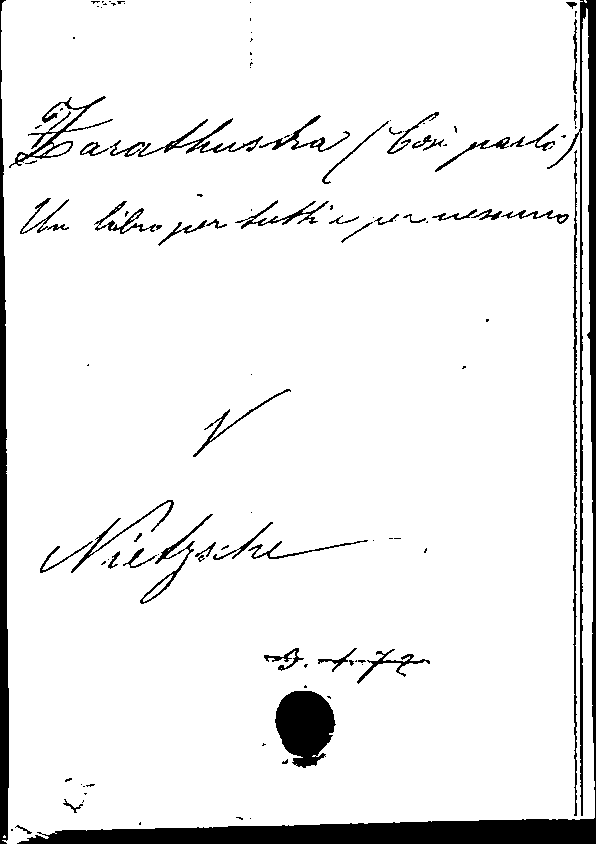 Zarathustra (Così parlò)
Un libro per tutti e per nessuno
V
Nietzsche